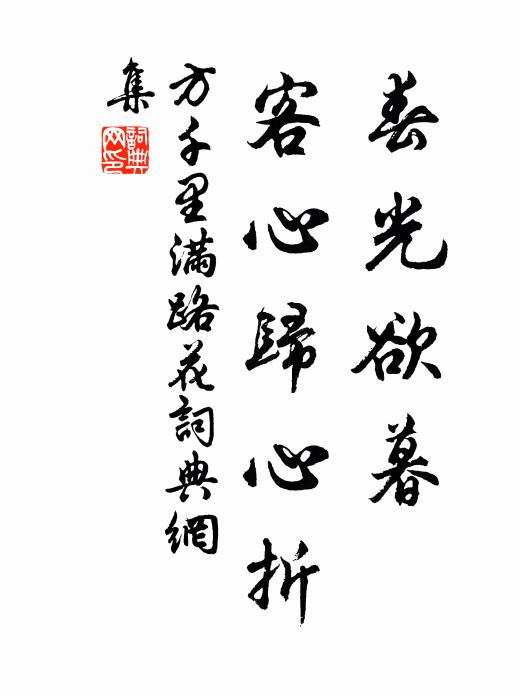 春光欲暮
客心歸心折
方千里满路花詞典網
集
詞典網印